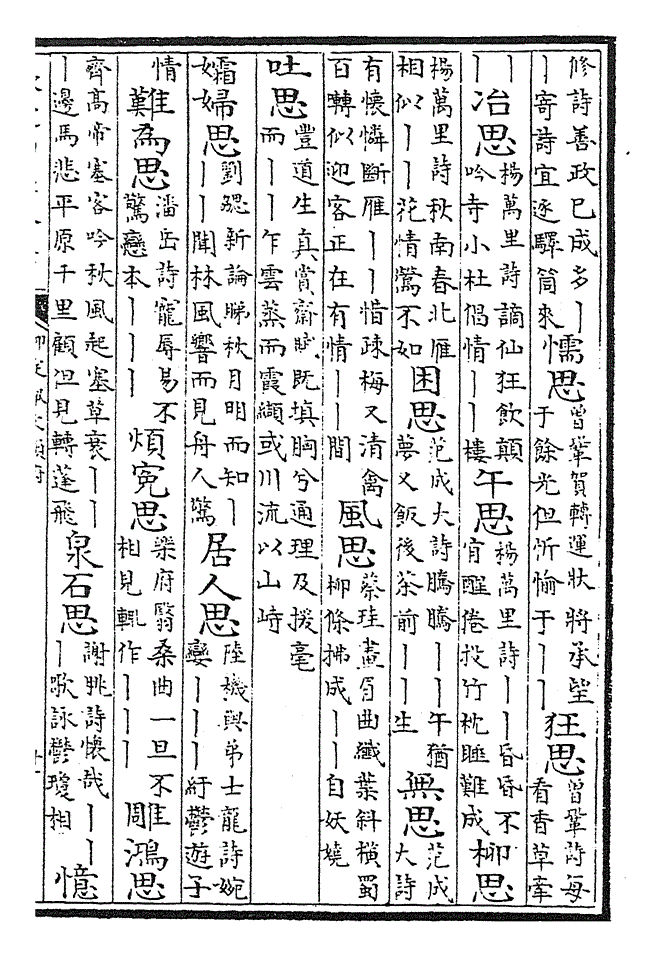 修詩善政已成多〡〡寄詩宜逐驛筒來懦思曾鞏賀轉運狀將承望于餘光但忻愉于〡〡狂思曾鞏詩每看香草牽
〡〡冶思楊萬里詩謫仙狂飲顛吟寺小杜倡情〡〡樓午思楊萬里詩〡〡昏昏不肯醒倦投竹枕睡難成柳思
楊萬里詩秋南春北雁相似〡〡花情鶯不如困思范成大詩騰騰〡〡午猶夢又飯後茶前〡〡生無思范成大詩
有懷憐斷雁〡〡惜疎梅又清禽百囀似迎客正在有情〡〡間風思蔡珪畫眉曲纖葉斜橫蜀柳條拂成〡〡自妖嬈
吐思豐道生真賞齋賦既填胸兮通理及援毫而〡〡乍雲蒸而霞纈或川流以山峙
孀婦思劉勰新論睇秋月明而知〡〡〡聞林風響而見舟人驚居人思陸機與弟士龍詩婉孌〡〡〡紆鬱遊子
情難為思潘岳詩寵辱易不驚戀本〡〡〡煩冤思樂府翳桑曲一旦不相見輒作〡〡〡雕鴻思
齊高帝塞客吟秋風起塞草衰〡〡〡邊馬悲平原千里顧但見轉蓬飛泉石思謝朓詩懷哉〡〡〡歌詠鬱瓊相憶